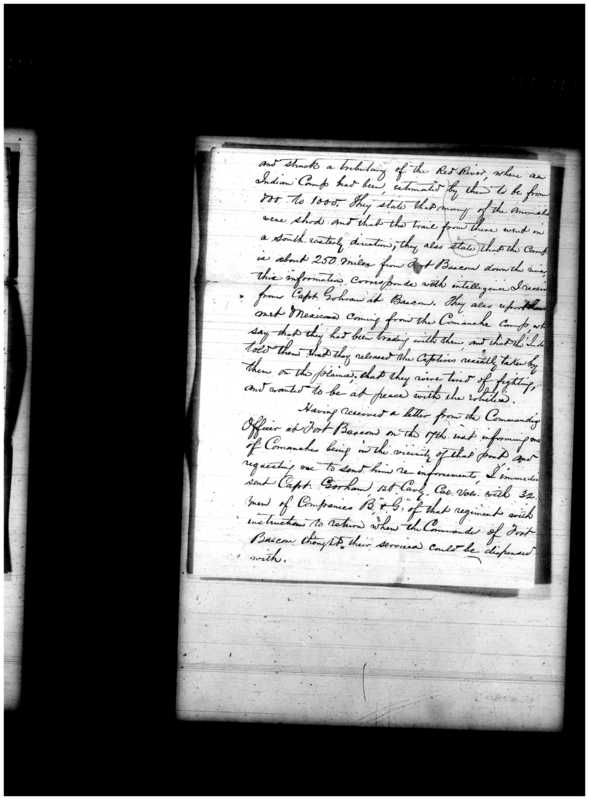 and struck a tributary of the Red River, where an
Indian Camp had been, estimated by them to be from
800 to 1000. They state that many of the animals
were shod and that the trail from there went in
a south westerly direction, they also state that the Camp
is about 250 miles from Fort Bascom down the river,
this information corresponds with intelligence I receiv
from Capt at Bascom. They also report
met Mexicans coming from the Comanche Camp, who
say that they had been trading with them and that the
told them that they released the Captives recently taken by
them on the plains, that they were tired of fighting,
and wanted to be at peace with the whites.
Having received a letter from the Commanding
Officer at Fort Bascom on the 17th inst informing me
of Comanches being in the vicinity of that post and
requesting me to send him re-inforcements, I immedia
sent Capt. Gorham, 1st Cavy. Cal. Vols. with 32
men of Companies B, & G. of that regiment with
instruction to return when the Commander of Fort
Bascom thought their services could be dispensed
with.